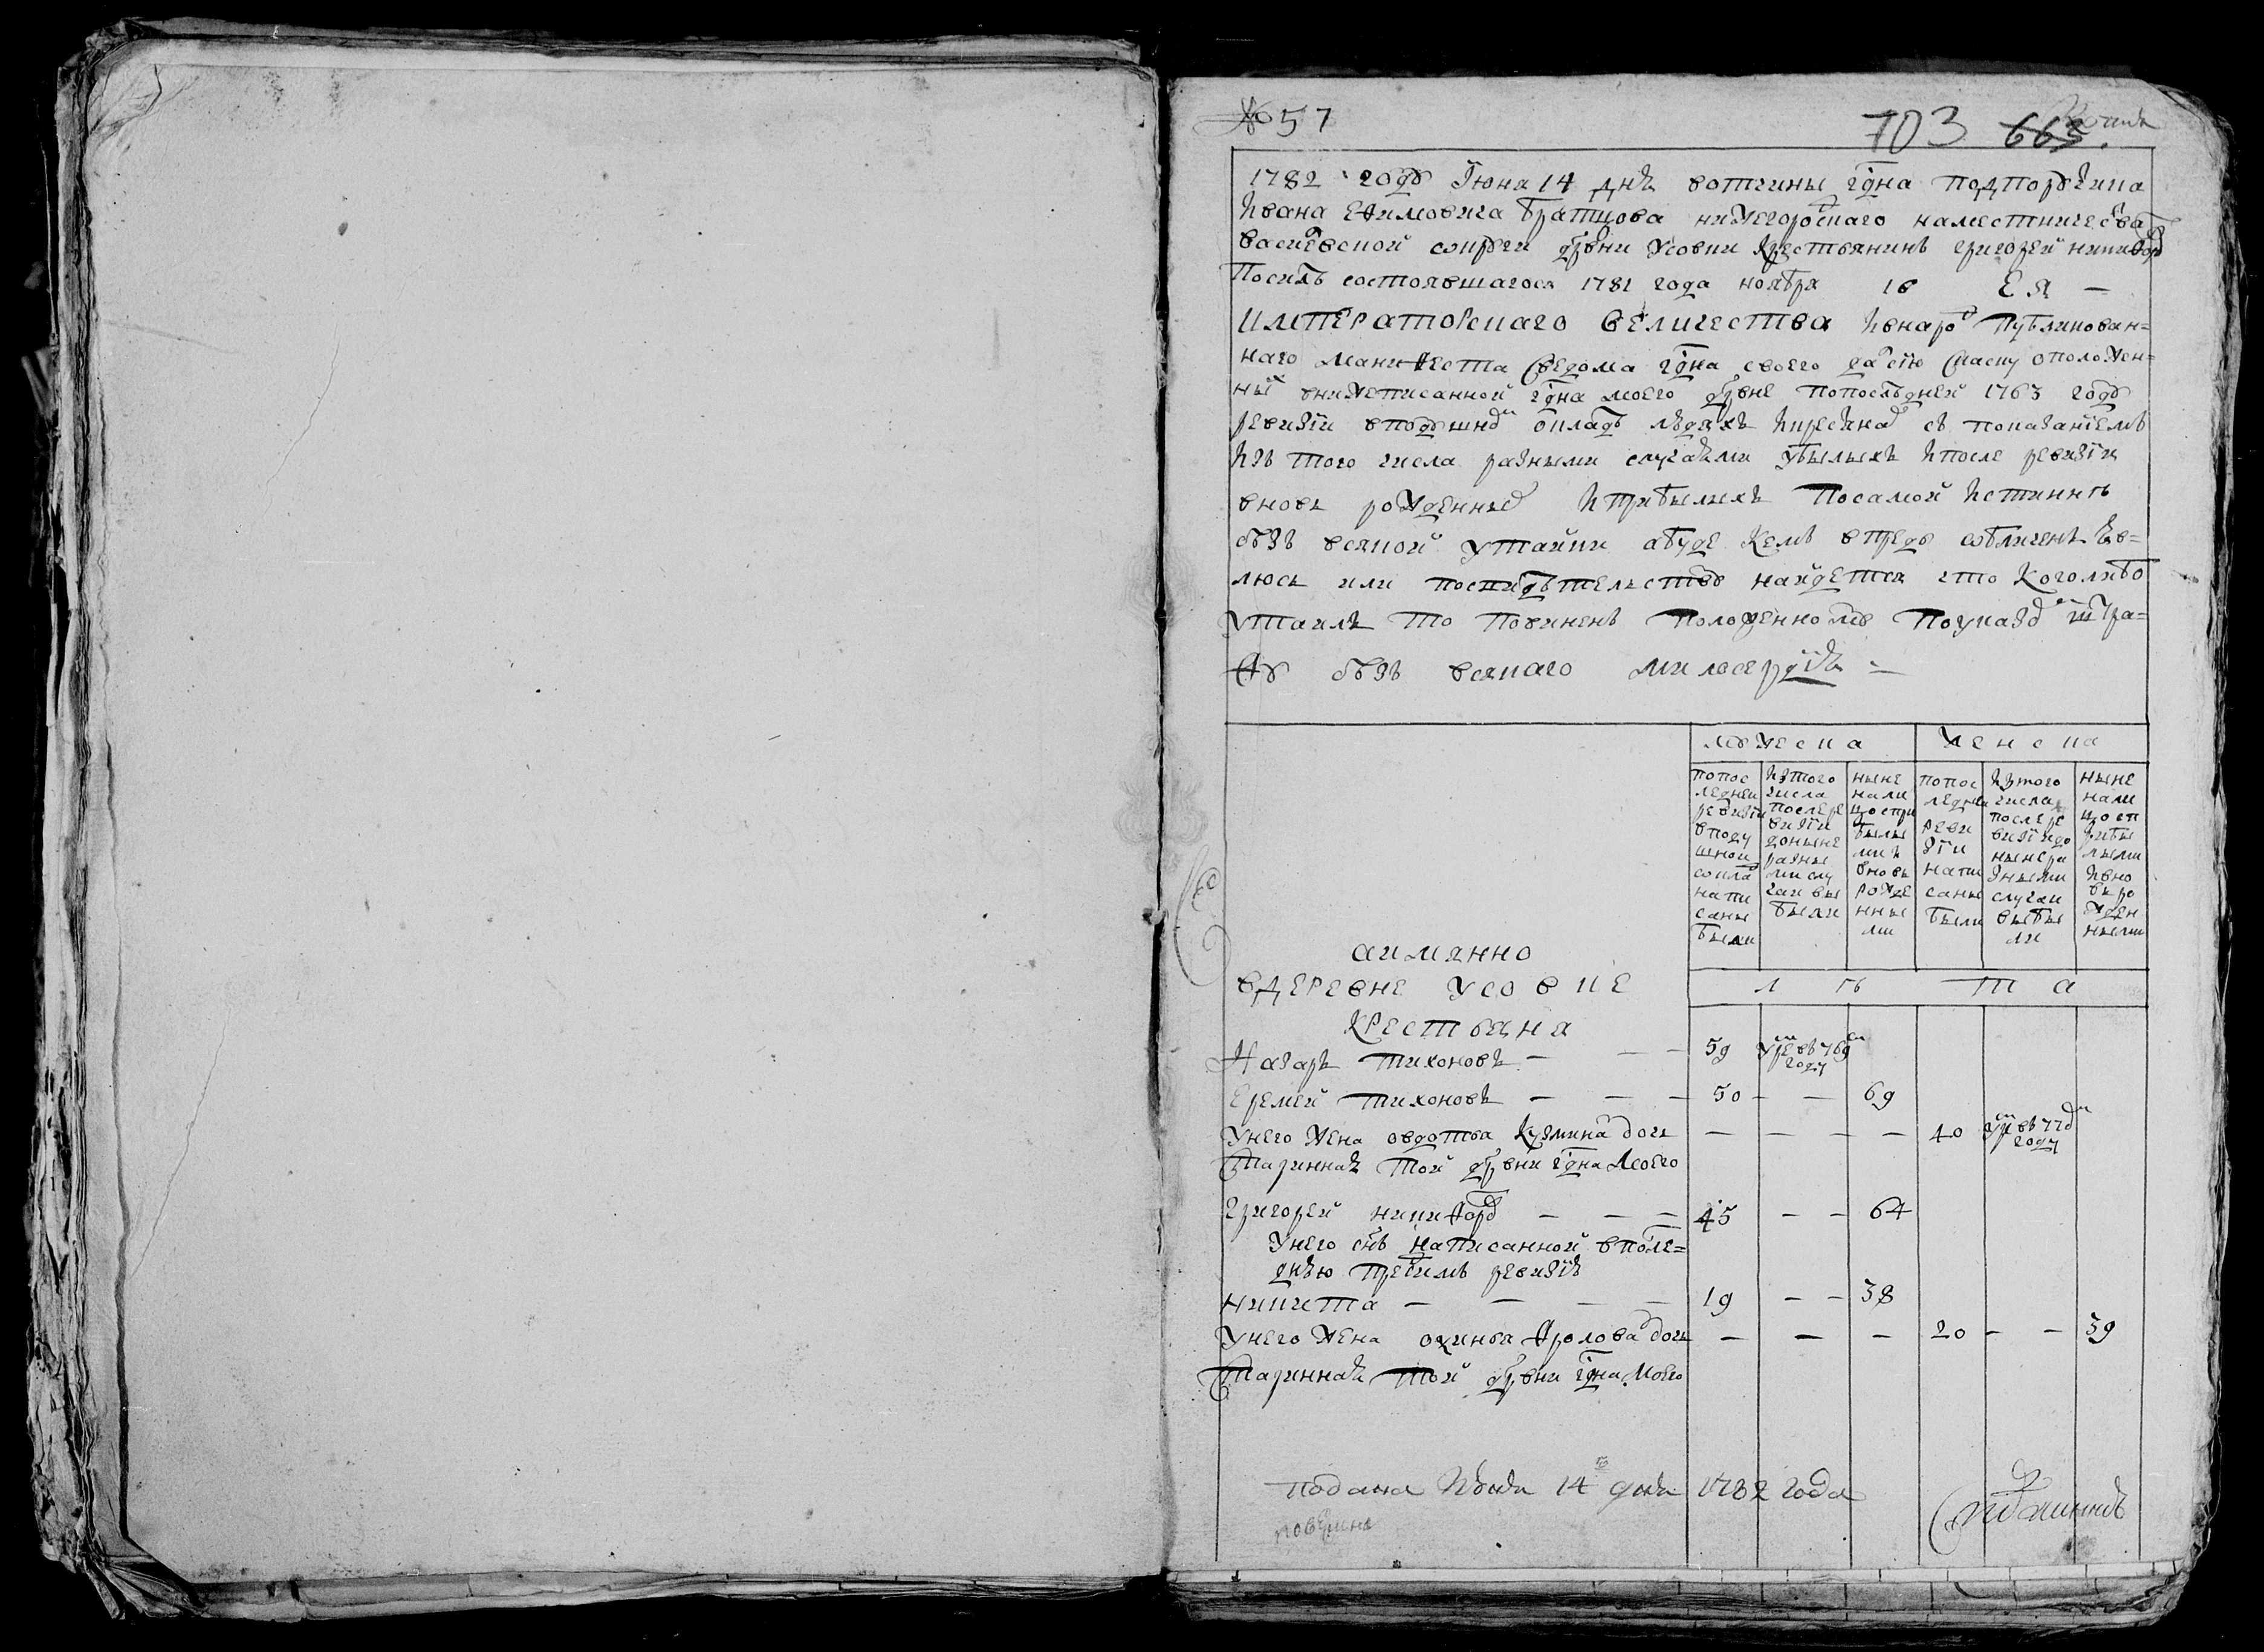 № 57
703 665.
1782 году Июня 14 днѧ вотчины гдна подпорутчика
Ивана Ефимовича братцова нижегороского наместничества
васиевской округи дрвни Усовки крестьянинъ григорей никифор
Посилѣ состоявшагося 1781 года ноября 16 ЕЯ —
ИМПЕРАТОРскаго ВЕЛИЧЕСТВА Ивнаро Публикован=
наго Манифеста сведома гдна своего дасию скаску оположен=
ны внижеписанной гдна моего дрвне попоследней 1763 году
ревизии вподушно окладъ людяхъ Икресьяна съ показаниемъ
Изъ того числа разными случаями убылыхъ Ипосле ревизии
вновь рожденны Иприбылыхъ Посамой Истиннѣ
безъ всякой утайки абуде Кемъ впредь обличенъ Яв=
люсь или посвидѣтельству найдется что Коголибо
Утаилъ то Повиненъ Положенному Поуказу штра=
фу безъ всякаго милосердия —
мужеска женска
попос ледней ревизии вподу шном окла напи саны были
Изтого числа послере визии доныне разны ми слу чаи вы были
ныне нали цоспри былы ми и вновь рожде нны ми
попос ледней реви зии напи саны были
Изтого числа послере визиидо нынера зными случаи выбы ли
ныне нали цосп рибы лыми Ивно вь ро жден ными
аимянно
ВДЕРЕВНЕ УСОВКЕ
л ѣ т а
КРЕСТЬЯНА
Назаръ тихоновъ — — — 59 умре въ 769 году
Еремей тихоновъ — — — 50 — — 69
Унего жена овдотья Кузмина дочь — — — — 40 умре въ 77 году
Стариннаѧ той дрвни гдна Моего
Григорей никифор — — — 45 — — 64
Унего снъ написанной впосле=
днѣю предсимъ ревизиѣ
никита — — — — 19 — — 38
Унего жена оксинья фролова дочь — — — 20 — — 39
Стариннаѧ той дрвни гдна Моего
подана Июня 14 дня 1782 года